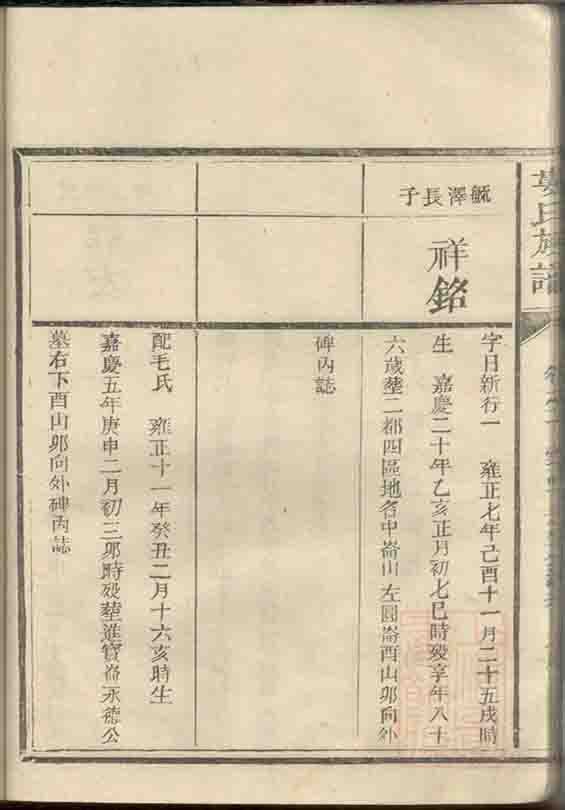 氏族譜
毓澤長子
祥銘
字日新行一 雍正七年己酉十一月二十五戌時
生 嘉慶二十年乙亥正月初七巳時殁享年八十
六歲塟二都四區地名中崙山左圓崙酉山卯向外
碑內誌
配毛氏 雍正十一年癸丑二月十六亥時生
嘉慶五年庚申二月初三卯時殁塟進寶崙永德公
墓右下酉山卯向外碑內誌